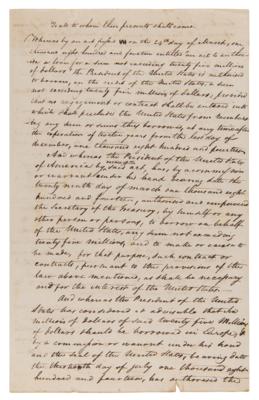 To all to whom these presents shall come.
Whereas by an act passed on the 24th day of March, one
thousand eight hundred and fourteen entitled an act to author-
ise a loan for a sum not exceeding twenty five millions
of dollars" the President of the United States is authorised
to borrow, on the credit of the United States, a sum
not exceeding twenty five millions of dollars, provided
that no engagement or contract shall be entered into
which shall preclude the United States from reimburs-
ing any sum or sums thus borrowed, at any time after
the expiration of twelve years from the last day of
december, one thousand eight hundred and fourteen
And whereas the President of the United States
of America by an act
or warrant under his hand bearing date the
twenty ninth day of march one thousand eight
hundred and fourteen, authorised and empowered
the Secretary of the Treasury, by himself or any
other person or persons, to borrow on behalf
of the United States, any sum not exceeding
twenty five millions, and to make or cause to
be made, for that purpose, such contract or
contracts, pursuant to the provisions of the
law above mentioned, as shall be necessary
and for the interest of the United States.
And whereas the President of the United
States has considered it advisable that six
millions of dollars of said twenty five Millions
of dollars should be borrowed in Europe &
by a commission or warrant under his hand
and the seal of the United States, bearing date
the day of july one thousand eight
hundred and fourteen, has authorised the